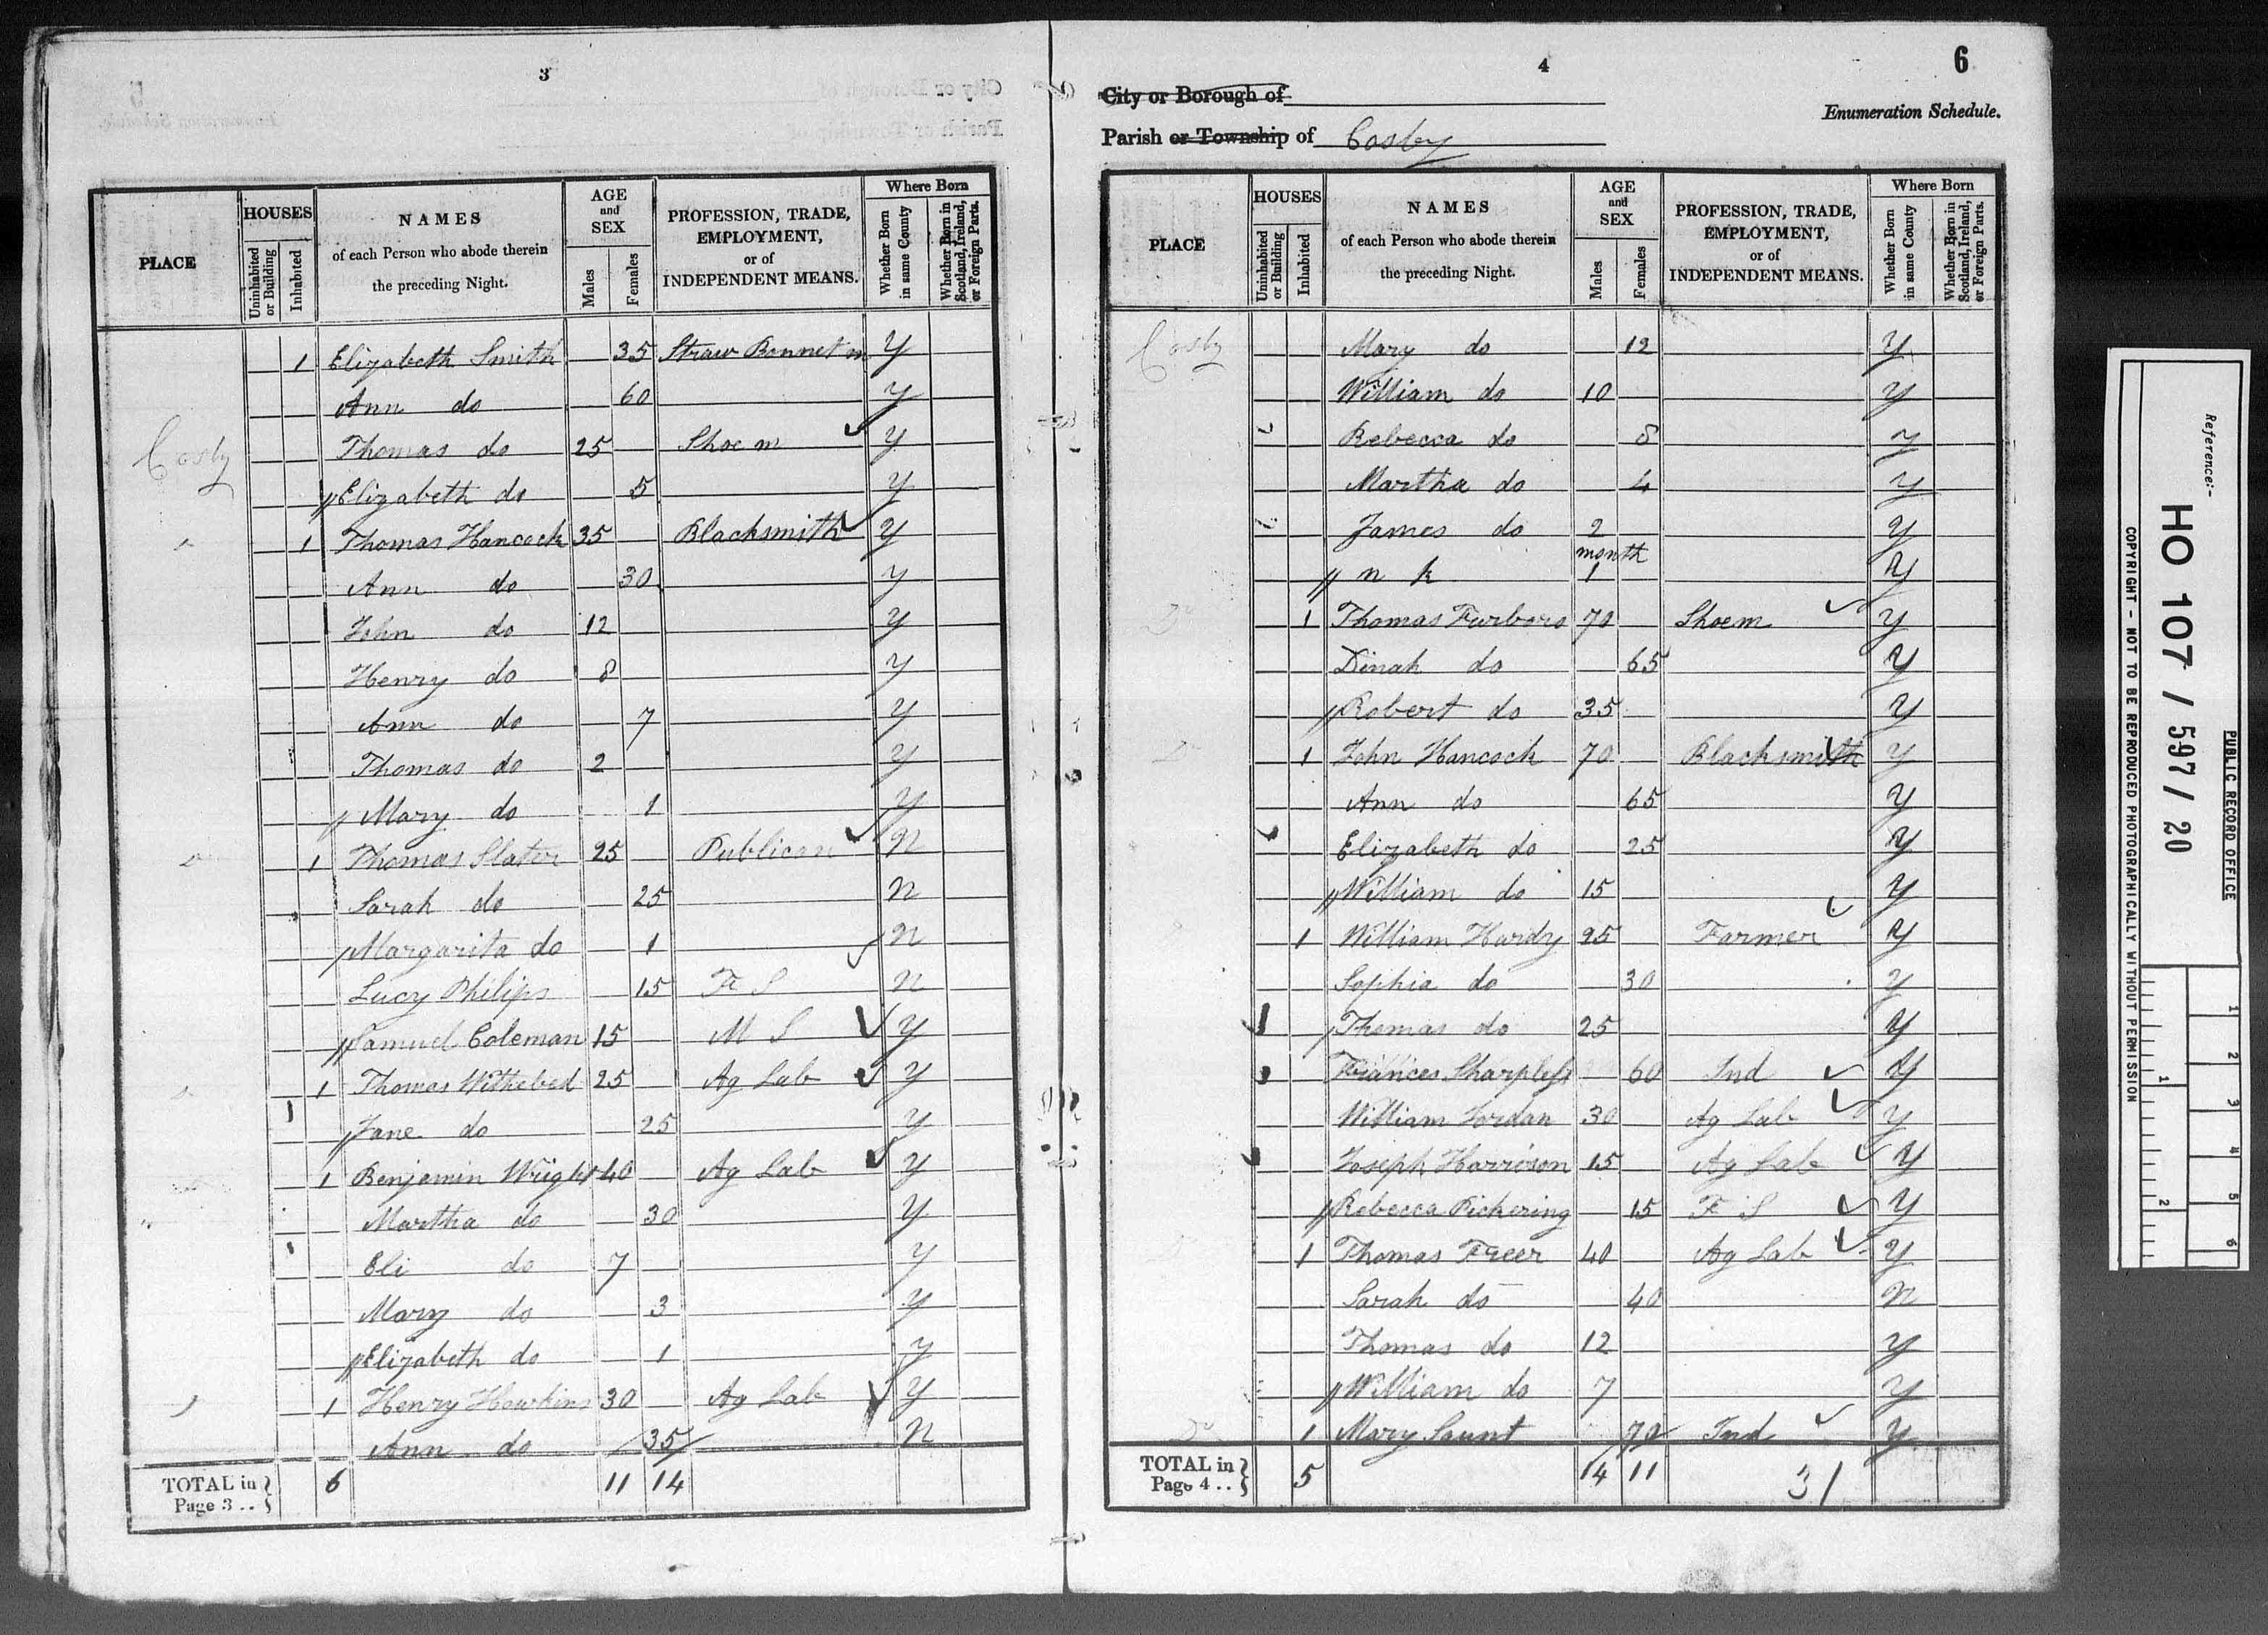 3
PLACE
HOUSES
Uninhabited or Building
Inhabited
NAMES
of each Person who abode therein
the preceding Night.
AGE and SEX
Males
Females
PROFESSION, TRADE,
EMPLOYMENT,
or of
INDEPENDENT MEANS.
Where Born
Whether Born in same County
Whether Born in Scotland, Ireland, or Foreign Parts.
1 Elizabeth Smith 35 Straw Bonnet m Y
Ann do 60 Y
Cosby Thomas do 25 Shoe m Y
Elizabeth do 5 Y
1 Thomas Hancock 35 Blacksmith Y
Ann do 30 Y
John do 12 Y
Henry do 8 Y
Ann do 7 Y
Thomas do 2 Y
Mary do 1 Y
1 Thomas Slater 25 Publican N
Sarah do 25 N
Margarita do 1 N
Lucy Philips 15 F S N
Samuel Coleman 15 M S Y
1 Thomas Withebed 25 Ag Lab Y
Jane do 25 Y
1 Benjamin Wright 40 Ag Lab Y
Martha do 30 Y
Eli do 7 Y
Mary do 3 Y
Elizabeth do 1 Y
1 Henry Hawkins 30 Ag Lab Y
Ann do 35 N
TOTAL in Page 3 .. 6 11 14
4
6
City or Borough of
Enumeration Schedule.
Parish or Township of Cosby
PLACE
HOUSES
Uninhabited or Building
Inhabited
NAMES
of each Person who abode therein
the preceding Night.
AGE and SEX
Males
Females
PROFESSION, TRADE,
EMPLOYMENT,
or of
INDEPENDENT MEANS.
Where Born
Whether Born in same County
Whether Born in Scotland, Ireland, or Foreign Parts.
Cosby Mary do 12 Y
William do 10 Y
Rebecca do 8 Y
Martha do 4 Y
James do 2 Y
month
n k 1 Y
Do 1 Thomas Furboro 70 Shoem Y
Dinah do 65 Y
Robert do 35 Y
Do 1 John Hancock 70 Blacksmith Y
Ann do 65 Y
Elizabeth do 25 Y
William do 15 Y
1 William Hardy 25 Farmer Y
Sophia do 30 Y
Thomas do 25 Y
Frances Sharpless 60 Ind Y
William Jordan 30 Ag Lab Y
Joseph Harrison 15 Ag Lab Y
Rebecca Pickering 15 F S Y
1 Thomas Freer 40 Ag Lab Y
Sarah do 40 N
Thomas do 12 Y
William do 7 Y
Do 1 Mary Saunt 70 Ind Y
TOTAL in Page 4 .. 5 14 11 31
PUBLIC RECORD OFFICE
Reference:-
HO 107 / 597 / 20
COPYRIGHT - NOT TO BE REPRODUCED PHOTOGRAPHICALLY WITHOUT PERMISSION
1 2 3 4 5 6
1 2